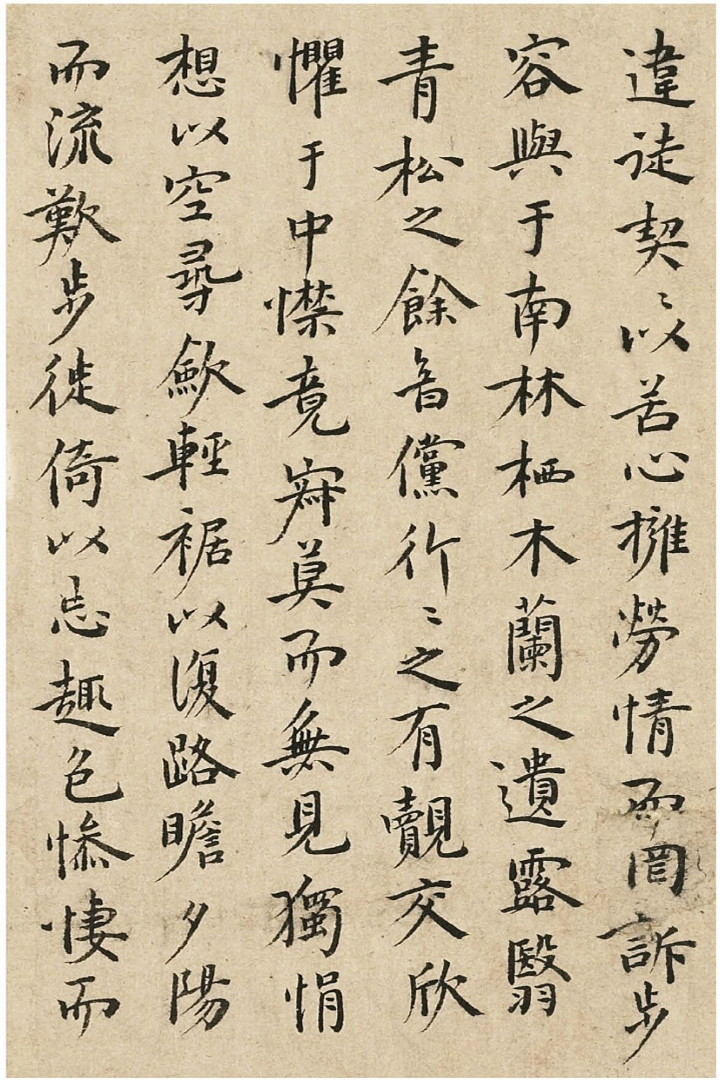 違徒契〻以苦心擁勞情而罔訴步
容與于南林栖木蘭之遺露翳
青松之餘音儻行〻之有覿交欣
懼于中襟竟寂莫而無見獨悁
想以空尋歛輕裾以復路瞻夕陽
而流歎步徙倚以忘趣色慘悽而